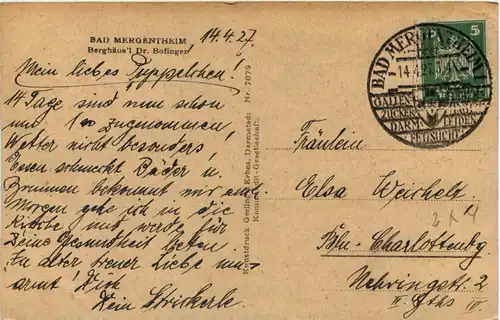 BAD MERGENTHEIM
Berghäus'l Dr. Bofinger
14.4.27.
Mein liebes Puppelchen!
14 Tage sind nun schon
um zugenommen,
Wetter nicht besonders,
Essen schmeckt Bäder u.
Brunnen bekommt mir
Morgen gehe ich in die
Kirche und werde für
Deine Gesundheit beten.
In alter treuer Liebe
armt Dich
Dein
Kunstdruck Gerling & Erbes, Darmstadt Nr. 7079
Kommandit-Gesellschaft.
BAD MERGENTHEIM
14.4.27
GALLEN
ZUCKER
DARM LEIDEN
5
Fräulein
Elsa Weichelt
Bln-Charlottenbg
Nehringstr. 2
II. Gths IV.